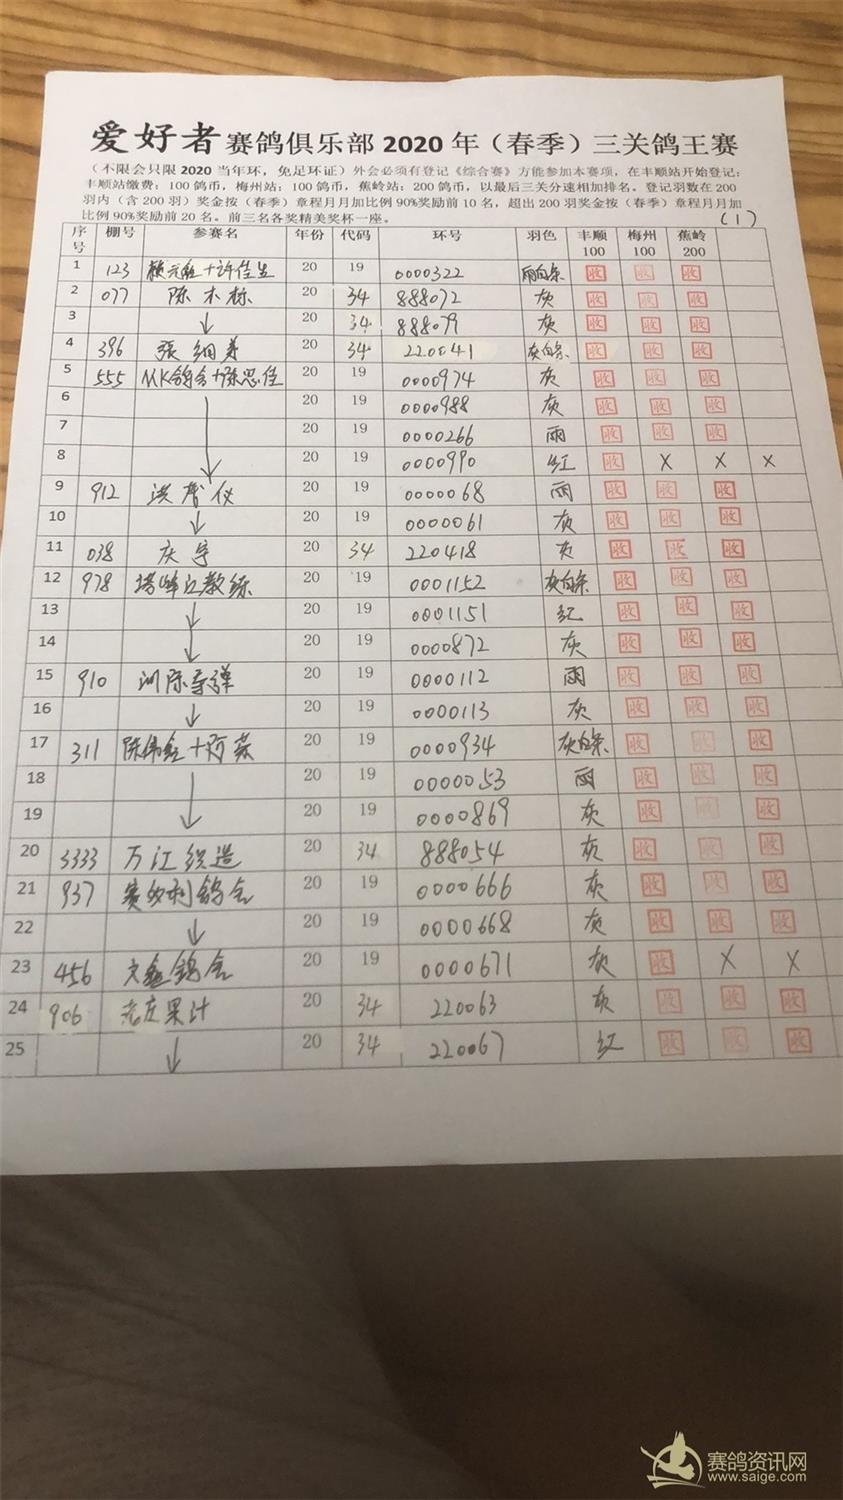 爱好者赛鸽俱乐部 2020 年（春季）三关鸽王赛
（不限会只限 2020 当年环，免足环证）外会必须有登记《综合赛》方能参加本赛项，在丰顺站开始登记：
丰顺站缴费：100 鸽币，梅州站：100 鸽币，蕉岭站：200 鸽币，以最后三关分速相加排名。登记羽数在 200
羽内（含 200 羽）奖金按（春季）章程月月加比例 90%奖励前 10 名，超出 200 羽奖金按（春季）章程月月加
比例 90%奖励前 20 名。前三名各奖精美奖杯一座。 (1)
序号 棚号 参赛名 年份 代码 环号 羽色 丰顺100 梅州100 蕉岭200
1 123 20 19 0000322 雨白条 收 收 收
2 077 陈木标 20 34 888072 灰 收 收 收
3 ↓ 20 34 888079 灰 收 收 收
4 396 張细弟 20 34 220041 灰白条 收 收 收
5 555 MK鸽舍+陈思佳 20 19 0000974 灰 收 收 收
6 20 19 0000988 灰 收 收 收
7 20 19 0000266 雨 收 收 收
8 ↓ 20 19 0000990 红 收 X X X
9 912 洪 仪 20 19 0000068 雨 收 收 收
10 ↓ 20 19 0000061 灰 收 收 收
11 038 庆宇 20 34 220418 灰 收 收 收
12 978 塔峰江教练 20 19 0001152 灰白条 收 收 收
13 ↓ 20 19 0001151 红 收 收 收
14 ↓ 20 19 0000872 灰 收 收 收
15 910 20 19 0000112 雨 收 收 收
16 ↓ 20 19 0000113 灰 收 收 收
17 311 陈伟 + 20 19 0000934 灰白条 收 收 收
18 20 19 0000053 雨 收 收 收
19 ↓ 20 19 0000869 灰 收 收 收
20 3333 万江织造 20 34 888054 灰 收 收 收
21 937 赛的利鸽舍 20 19 0000666 灰 收 收 收
22 ↓ 20 19 0000668 灰 收 收 收
23 456 文鑫鸽舍 20 19 0000671 灰 收 X X
24 906 老庄果汁 20 34 220063 灰 收 收 收
25 ↓ 20 34 220067 红 收 收 收
赛鸽资讯网
www.saige.com